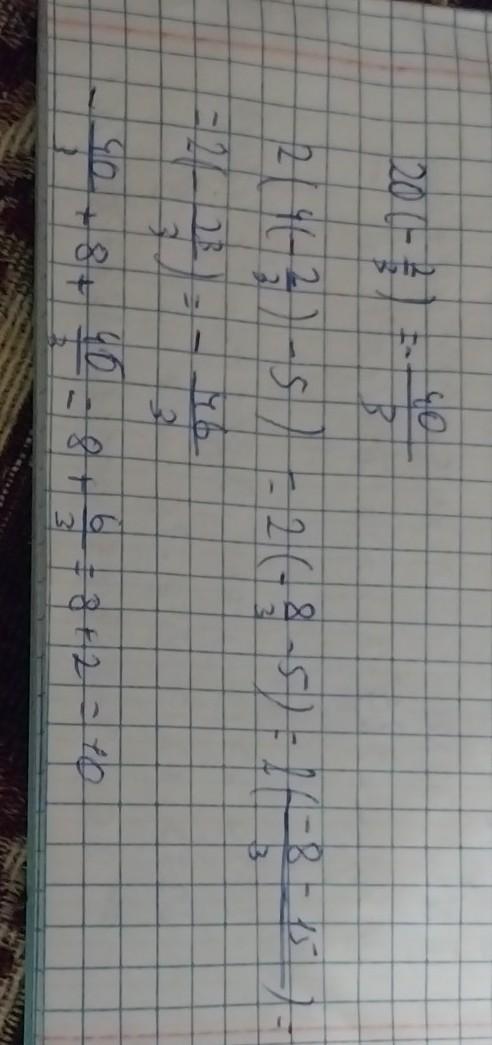 20(-2/3) = -40/3
2(4(-2/3) - 5) = 2(-8/3 - 5) = 2((-8-15)/3) =
= 2(-23/3) = -46/3
-40/3 + 8 + 46/3 = 8 + 6/3 = 8 + 2 = 10